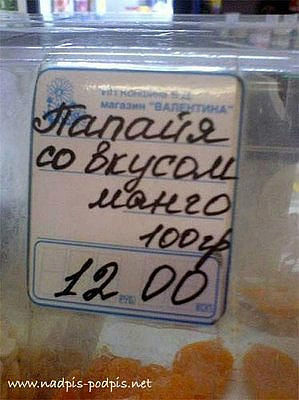 магазин "ВАЛЕНТИНА"
Папайя
со вкусом
манго
100гр
12 00
РУБ
www.nadpis-podpis.net